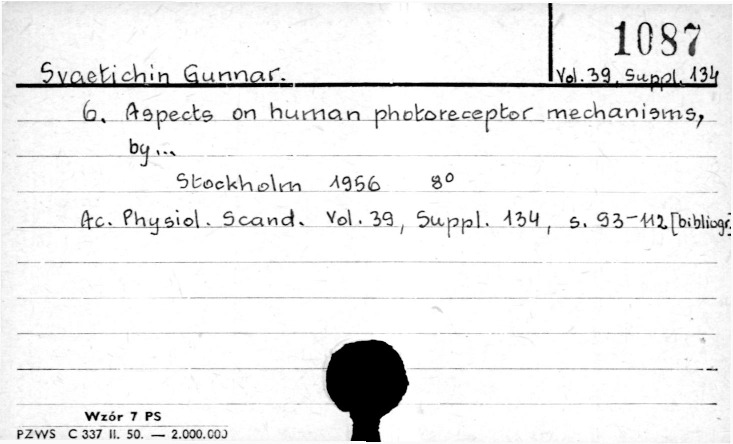 1087
Svaetichin Gunnar.
Vol. 39, Suppl. 134
6. Aspects on human photoreceptor mechanisms,
by...
Stockholm 1956 8°
Ac. Physiol. Scand. Vol. 39, Suppl. 134, s. 93-112 [bibliogr.
Wzór 7 PS
PZWS C 337 II. 50. — 2.000.000